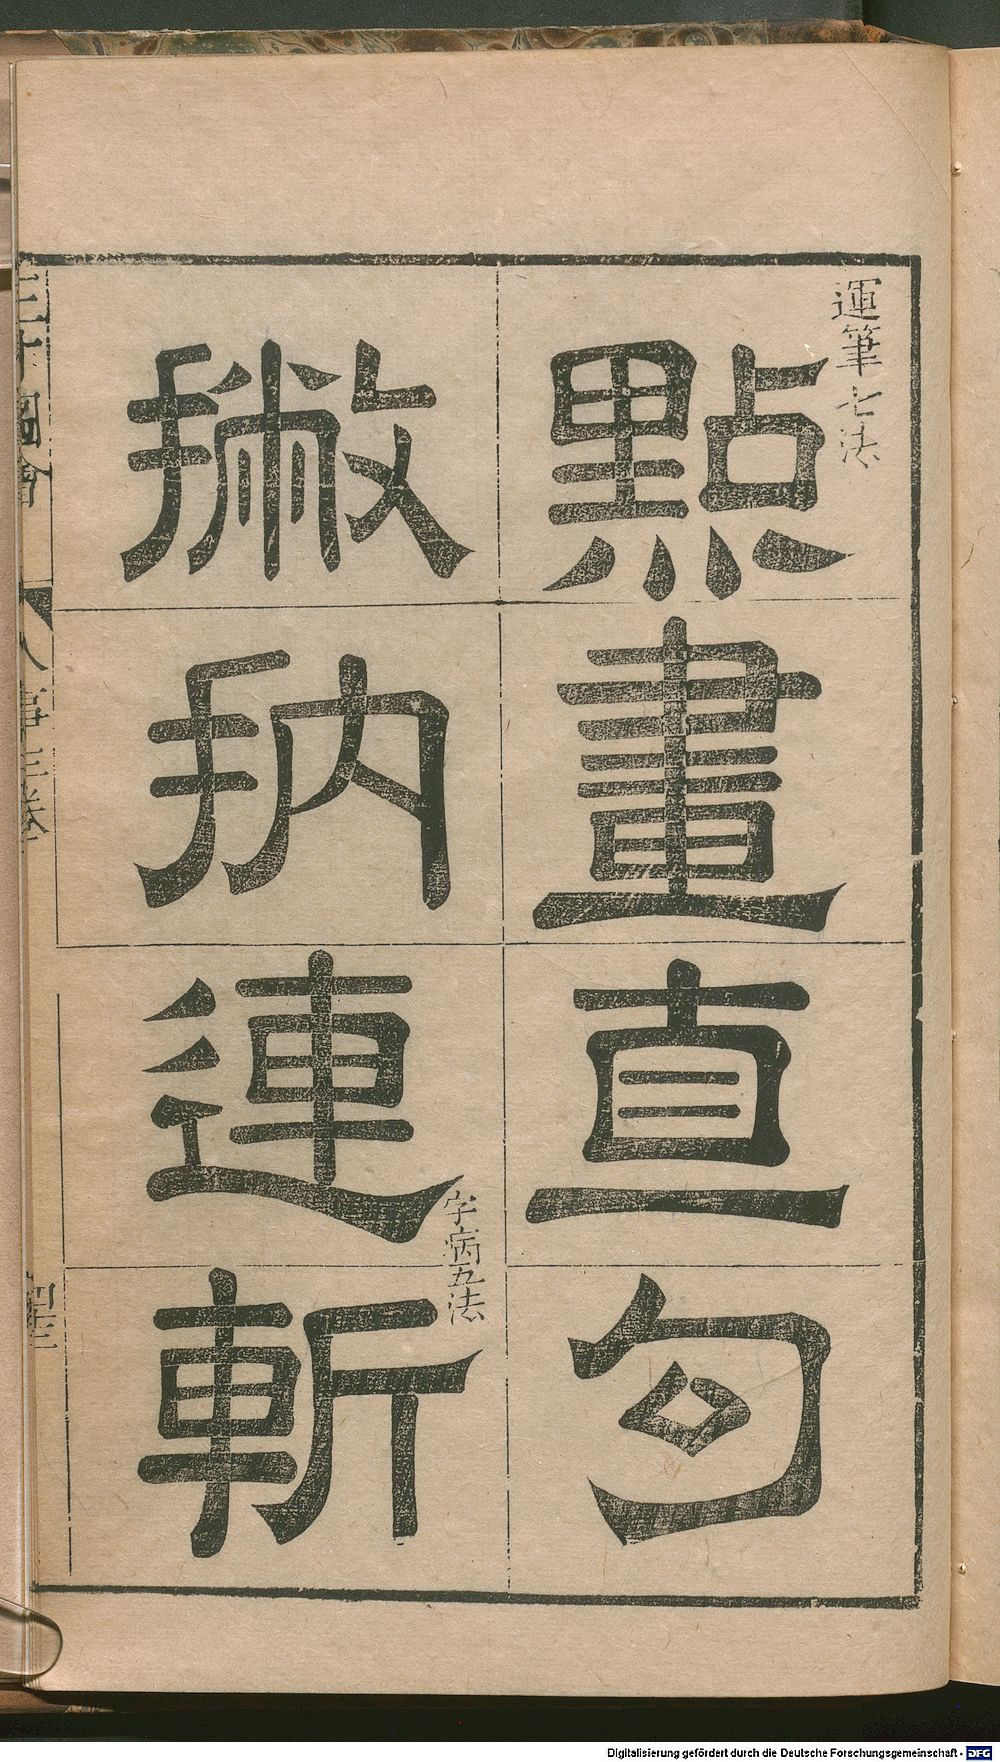 運筆七法
點畫直勾
撇捺連斬
字病五法
三才圖會
人事三卷
Digitalisierung gefördert durch die Deutsche Forschungsgemeinschaft - DFG